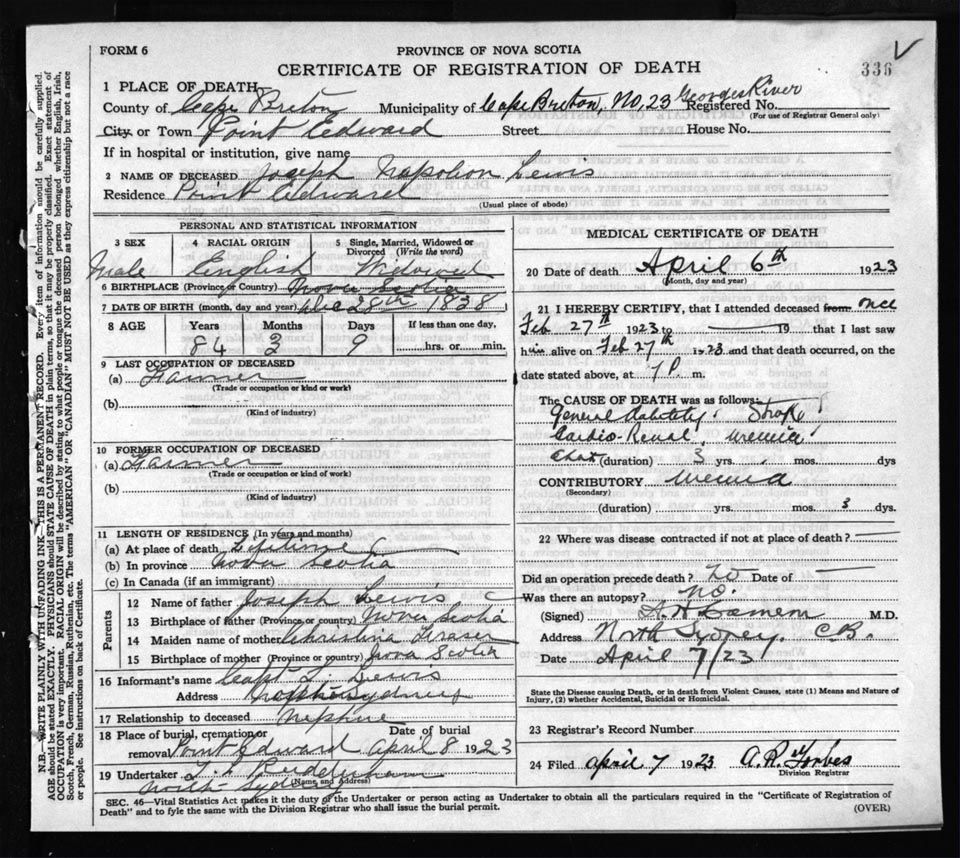 FORM 6
PROVINCE OF NOVA SCOTIA
CERTIFICATE OF REGISTRATION OF DEATH
336
1 PLACE OF DEATH
County of Cape Breton Municipality of Cape Breton, No, 23 Georges River Registered No.
(For use of Registrar General only)
City or Town Point Edward Street House No.
If in hospital or institution, give name
2 NAME OF DECEASED Joseph Napoleon Lewis
Residence Point Edward
(Usual place of abode)
PERSONAL AND STATISTICAL INFORMATION
3 SEX 4 RACIAL ORIGIN 5 Single, Married, Widowed or Divorced (Write the word)
Male English Widowed
6 BIRTHPLACE (Province or Country) Nova Scotia
7 DATE OF BIRTH (month, day and year) Dec 28th 1838
8 AGE Years Months Days If less than one day,
84 3 9 hrs. or min.
9 LAST OCCUPATION OF DECEASED
(a) Farmer
(Trade or occupation or kind or work)
(b)
(Kind of industry)
10 FORMER OCCUPATION OF DECEASED
(a) Farmer
(Trade or occupation or kind of work)
(b)
(Kind of industry)
11 LENGTH OF RESIDENCE (In years and months)
(a) At place of death Lifetime
(b) In province Nova Scotia
(c) In Canada (if an immigrant)
Parents
12 Name of father Joseph Lewis
13 Birthplace of father (Province or country) Nova Scotia
14 Maiden name of mother Christina Fraser
15 Birthplace of mother (Province or country) Nova Scotia
16 Informant's name Capt L. Lewis
Address North Sydney
17 Relationship to deceased Nephue
18 Place of burial, cremation or removal Point Edward Date of burial April 8 1923
19 Undertaker
(Name and Address)
North Sydney
MEDICAL CERTIFICATE OF DEATH
20 Date of death April 6th 1923
(Month, day and year)
21 I HEREBY CERTIFY, that I attended deceased from once
Feb 27th 1923 to 19 that I last saw
him alive on Feb 27th 1923 and that death occurred, on the
date stated above, at 7 P. m.
The CAUSE OF DEATH was as follows:
General Stroke!
Cardio-Renal,
(duration) 3 yrs. mos. dys
CONTRIBUTORY
(Secondary)
(duration) yrs. mos. 3 dys.
22 Where was disease contracted if not at place of death?
Did an operation precede death? No Date of
Was there an autopsy? No.
(Signed) M.D.
Address North Sydney. C.B.
Date April 7/23
State the Disease causing Death, or in death from Violent Causes, state (1) Means and Nature of Injury, (2) whether Accidental, Suicidal or Homicidal.
23 Registrar's Record Number
24 Filed April 7 1923 Forbes
Division Registrar
SEC. 46—Vital Statistics Act makes it the duty of the Undertaker or person acting as Undertaker to obtain all the particulars required in the "Certificate of Registration of
Death" and to fyle the same with the Division Registrar who shall issue the burial permit.
(OVER)
N.B.—WRITE PLAINLY WITH UNFADING INK—THIS IS A PERMANENT RECORD. Every item of information should be carefully supplied.
AGE should be stated EXACTLY. PHYSICIANS should STATE CAUSE OF DEATH in plain terms, so that it may be properly classified. Exact statement of
OCCUPATION is very important. RACIAL ORIGIN will be described by stating to what people or tongue the deceased person belonged whether English, Irish,
Scotch, French, German, Russian, Ruthenian, etc. The terms "AMERICAN" OR "CANADIAN" MUST NOT BE USED as they express citizenship but not a race
or people. See instructions on back of Certificate.